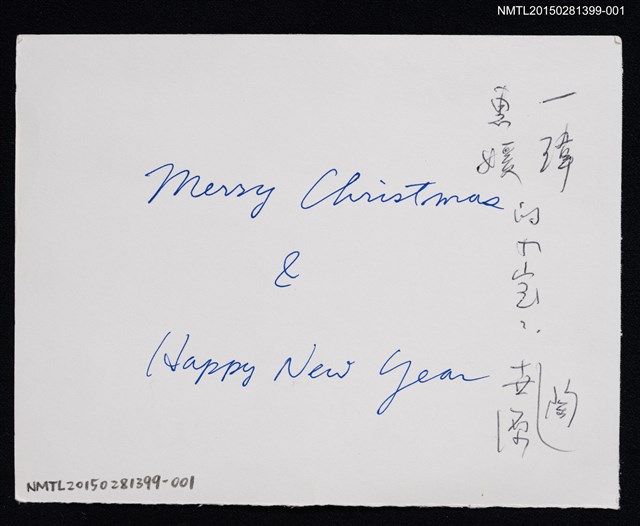 NMTL20150281399-001
一瑋
惠媛
的
Merry Christmas
&
Happy New Year
NMTL20150281399-001